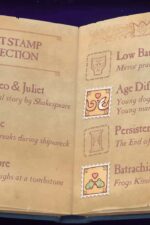 T STAMP
ECTION
eo & Juliet
al story by Shakespeare
e
reaks during shipwreck
ore
ughs at a tombstone
Low Ba
Age Dif
Young
Young
Persiste
The End of
Batrach
Frogs Kiss